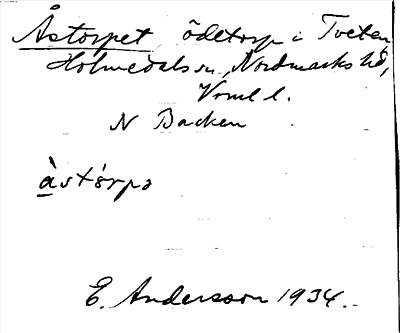 Åstorpet, ödetorp i Tveten,
Holmedals sn, Nordmarks hd,
Vrml l.
N Backen
åstòrpə
E. Andersson 1934.